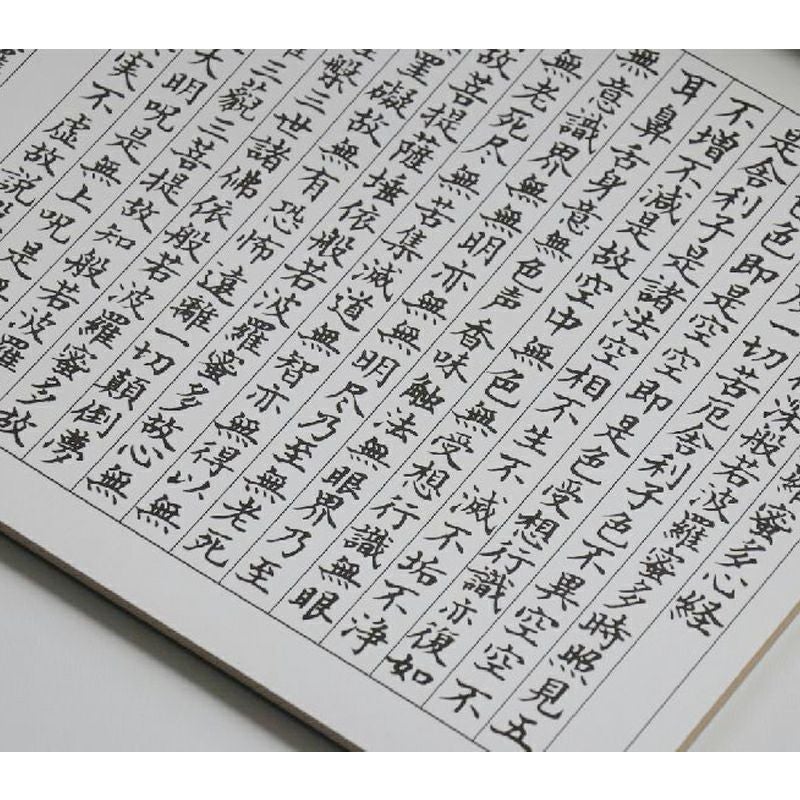 羅蜜多心経
深般若波羅蜜多時照見五
度一切苦厄舎利子色不異空空不
色色即是空空即是色受想行識亦復如
是舎利子是諸法空相不生不滅不垢不浄
不増不減是故空中無色無受想行識無眼
耳鼻舌身意無色声香味触法無眼界乃至
無意識界無無明亦無無明尽乃至無老死
無老死尽無苦集滅道無智亦無得以無
故菩提薩埵依般若波羅蜜多故心無
罣礙故無有恐怖遠離一切顛倒夢
槃三世諸佛依般若波羅蜜多故
三藐三菩提故知般若波羅
大明呪是無上呪是
実不虚故説